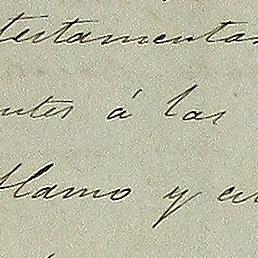 testamentas
ntes á las
llamo y en